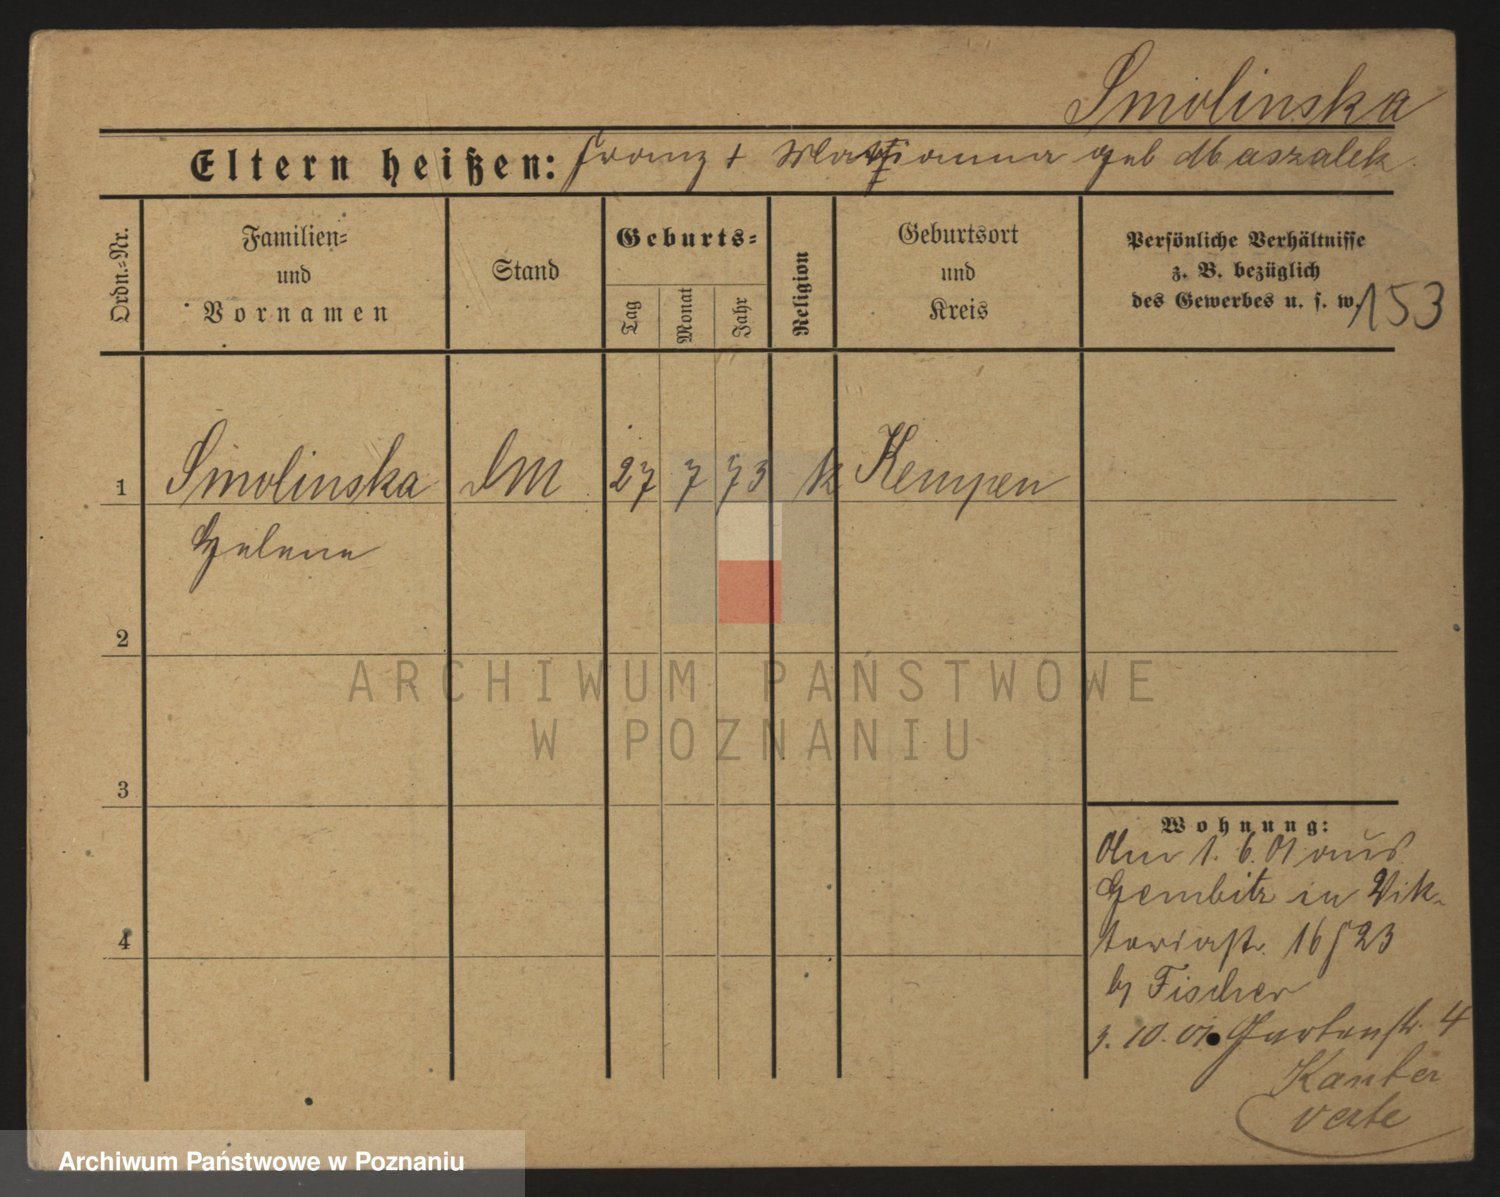 Smolinska
Eltern heißen: Franz + Marianna geb Maszalek
Ordn.=Nr.
Familien= und Vornamen
Stand
Geburts=
Tag
Monat
Jahr
Religion
Geburtsort und Kreis
Persönliche Verhältnisse
z. B. bezüglich
des Gewerbes u. s. w.
153
1 Smolinska DM 27 7 73 k Kempen
Helene
2
3
4
Wohnung:
Am 1. 6. 01 aus
Gembitz in Vik-
toriastr. 16/23
by Fischer
3. 10. 01 Gartenstr. 4
Kanter
verte
ARCHIWUM PAŃSTWOWE
W POZNANIU
Archiwum Państwowe w Poznaniu